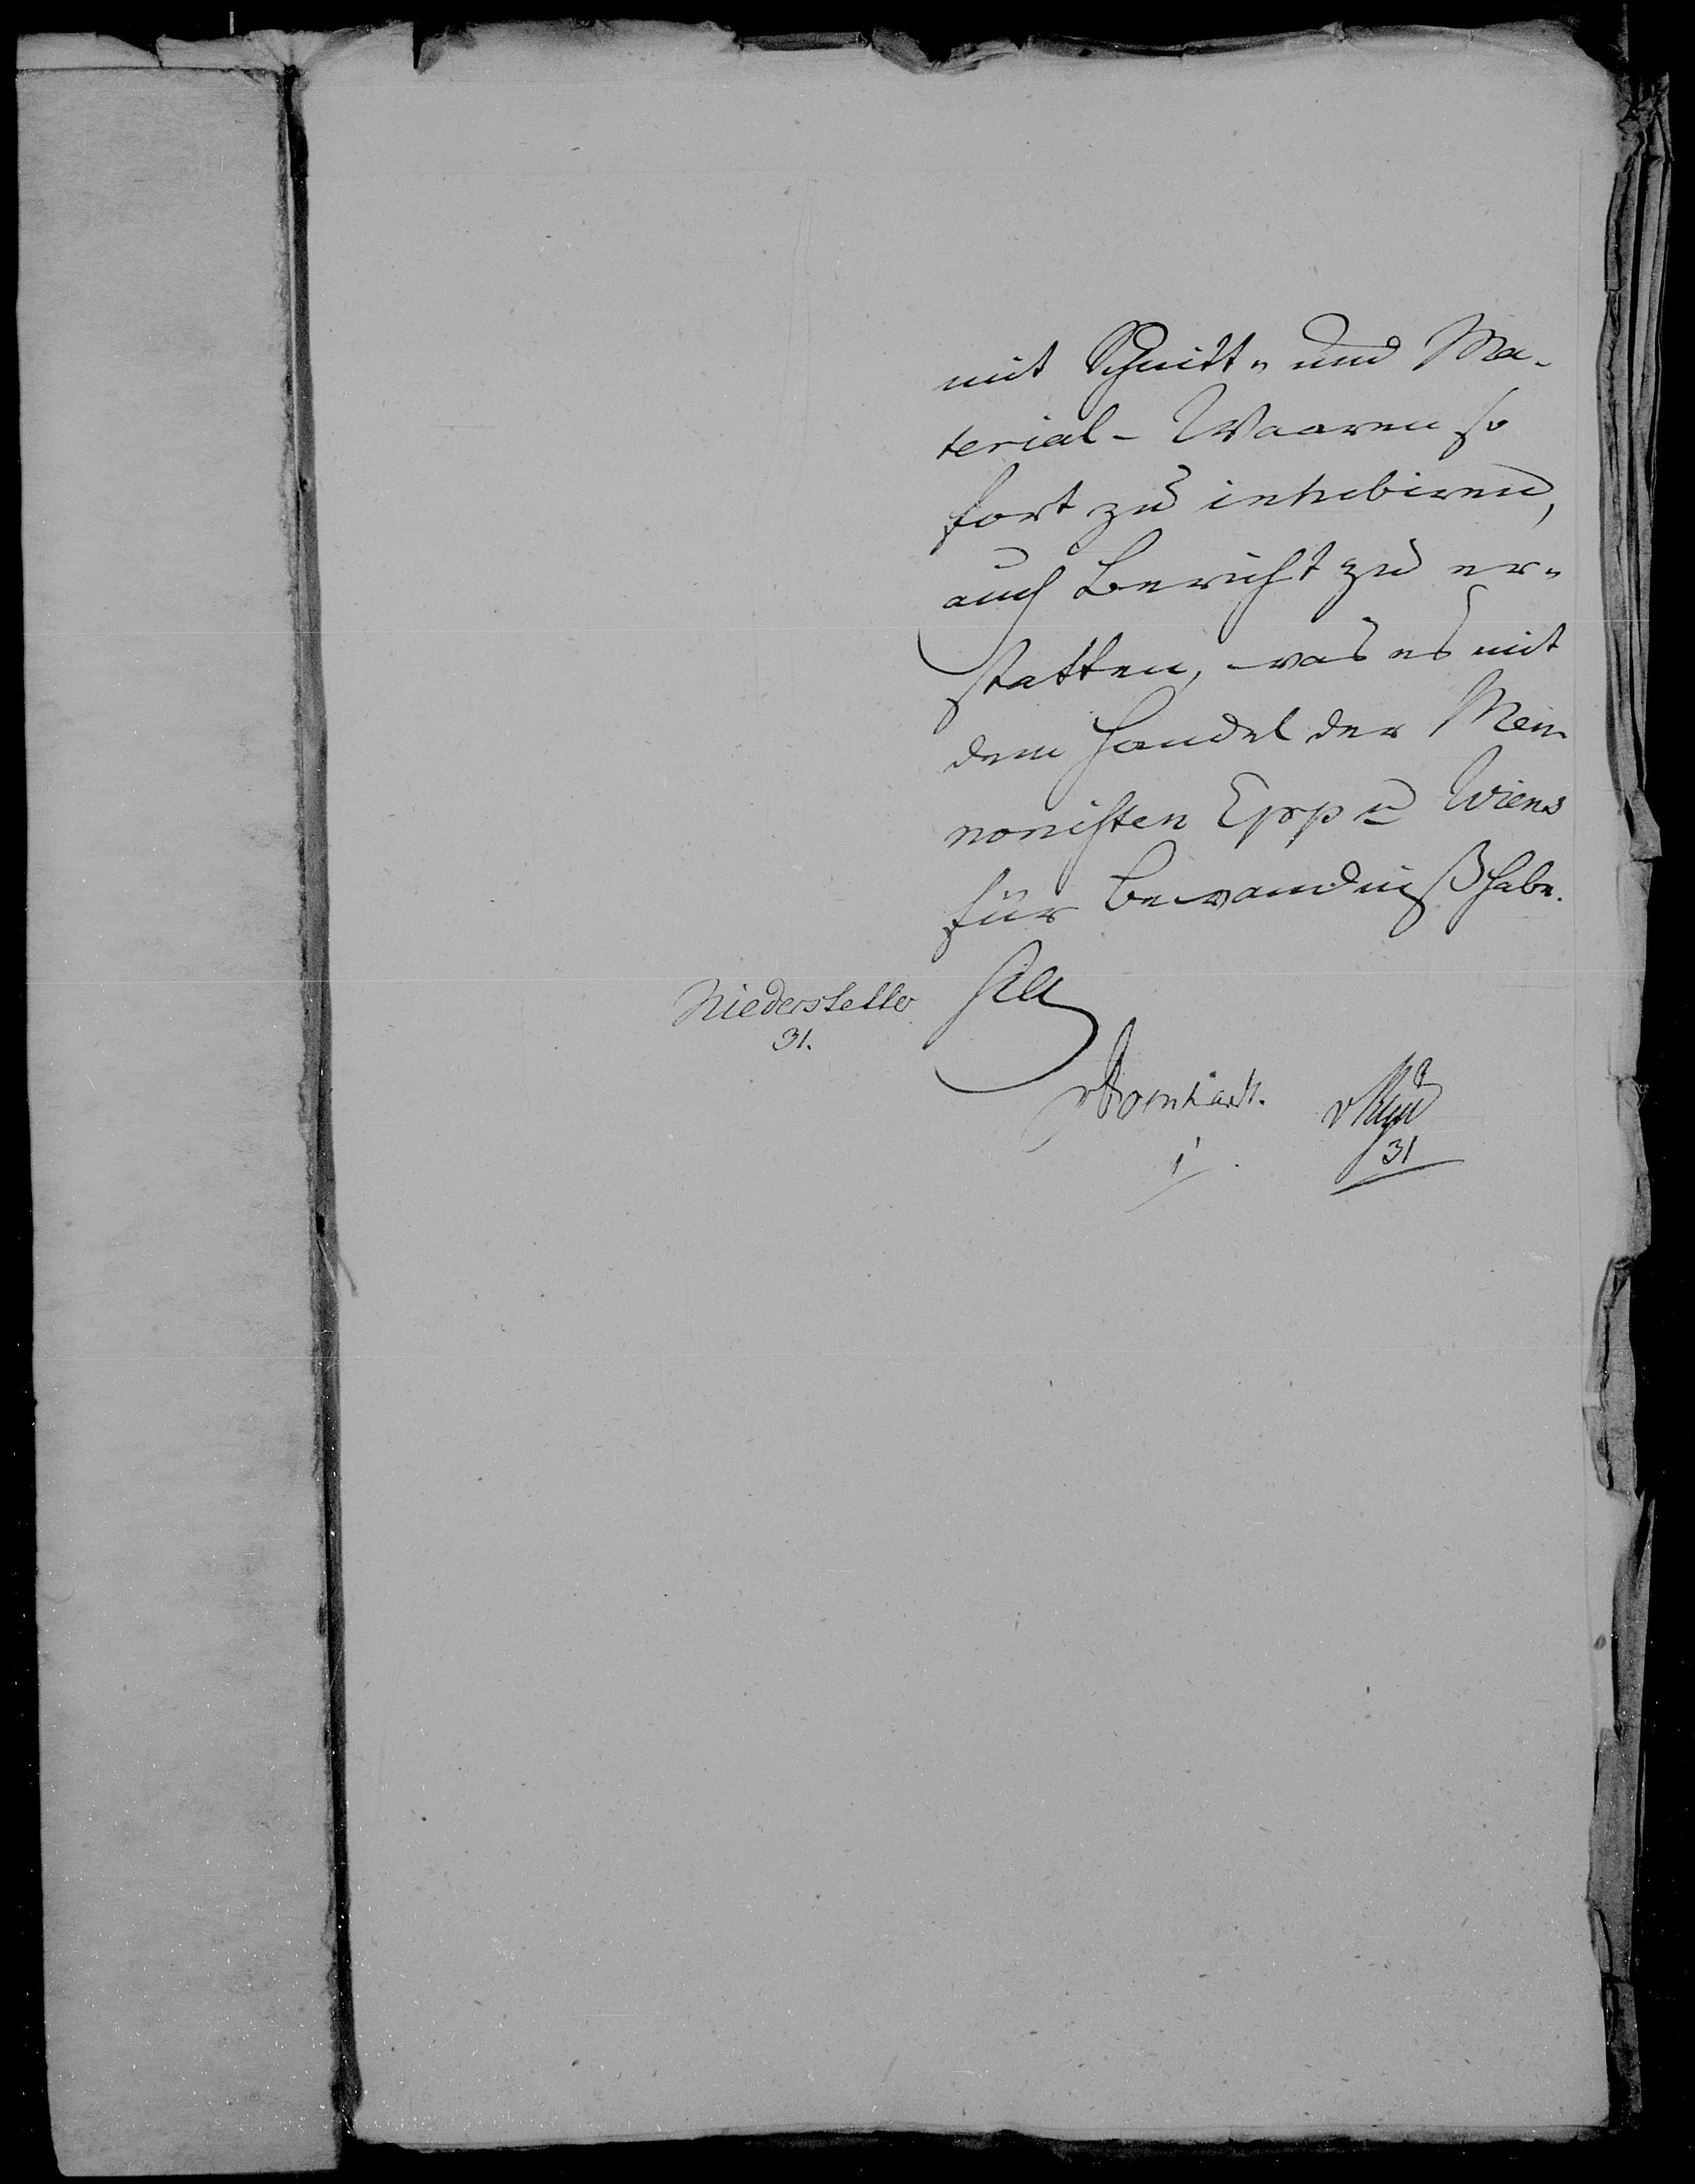 mit Schnitt- und Ma-
terial-Waaren so
fort zu inhibiren,
auch Bericht zu er-
statten, was es mit
dem Handel der Men-
nonisten Epp u Wiens
für Bewandniß habe.
Niederstetter
31.
31